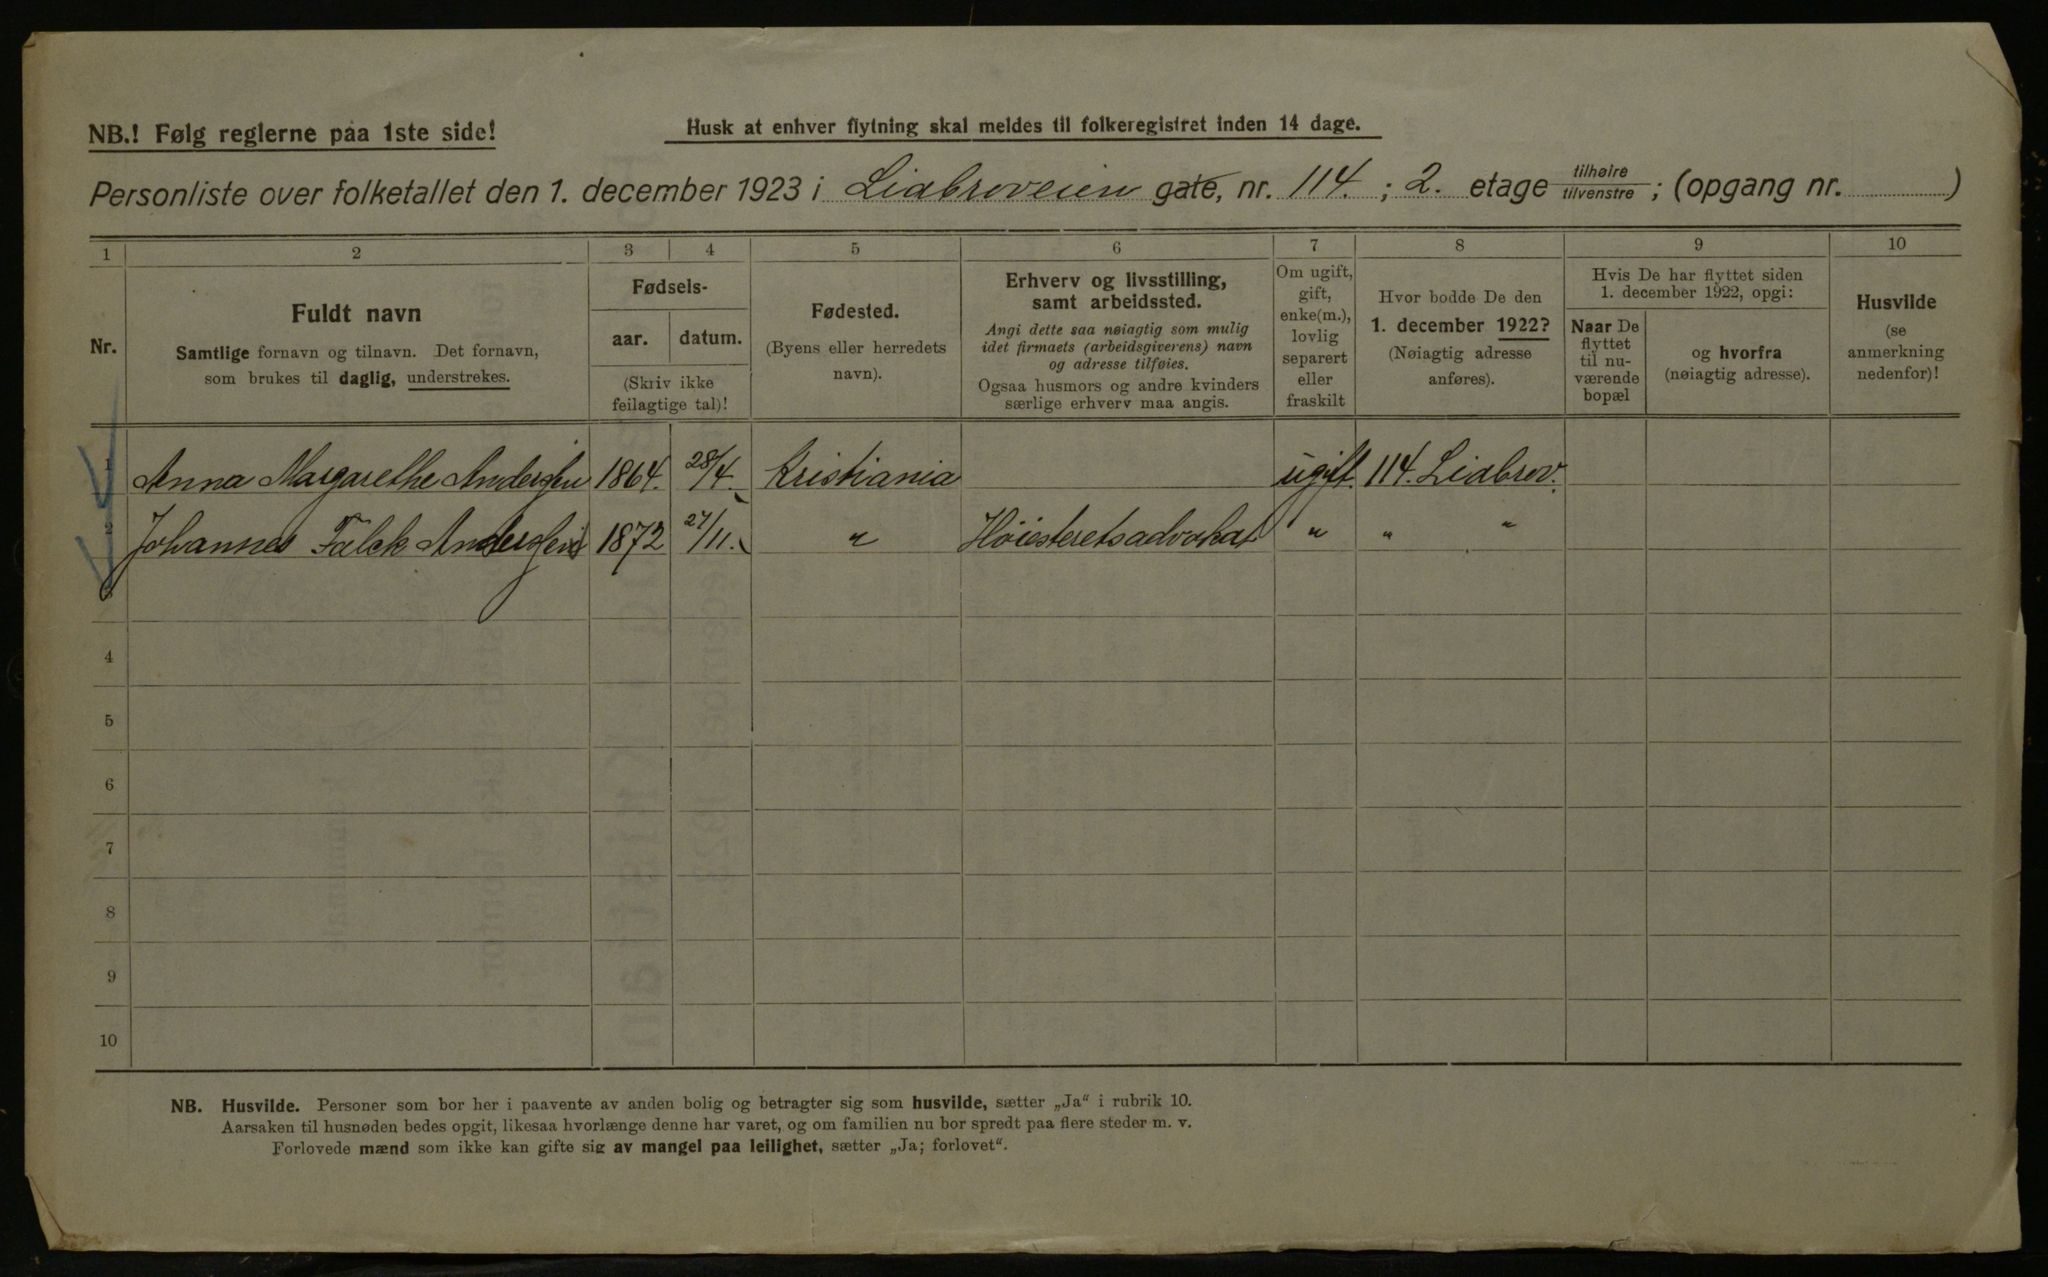 NB.! Følg reglerne paa 1ste side!
Husk at enhver flytning skal meldes til folkeregistret inden 14 dage.
Personliste over folketallet den 1. december 1923 i Liabroveien gate, nr. 114. ; 2. etage tilhøire tilvenstre ; (opgang nr. )
1 2 3 4 5 6 7 8 9 10
Nr.
Fuldt navn
Samtlige fornavn og tilnavn. Det fornavn,
som brukes til daglig, understrekes.
Fødsels-
aar. datum.
(Skriv ikke
feilagtige tal)!
Fødested.
(Byens eller herredets
navn).
Erhverv og livsstilling,
samt arbeidssted.
Angi dette saa nøiagtig som mulig
idet firmaets (arbeidsgiverens) navn
og adresse tilføies.
Ogsaa husmors og andre kvinders
særlige erhverv maa angis.
Om ugift,
gift,
enke(m.),
lovlig
separert
eller
fraskilt
Hvor bodde De den
1. december 1922?
(Nøiagtig adresse
anføres).
Hvis De har flyttet siden
1. december 1922, opgi:
Naar De
flyttet
til nu-
værende
bopæl
og hvorfra
(nøiagtig adresse).
Husvilde
(se
anmerkning
nedenfor)!
1 Anna Margarethe Andersen 1864. 28/4. Kristiania ugift. 114. Liabrov.
2 Johannes Falck Andersen 1872 27/11. " Høiesteretsadvokat " " "
3
4
5
6
7
8
9
10
NB. Husvilde. Personer som bor her i paavente av anden bolig og betragter sig som husvilde, sætter „Ja" i rubrik 10.
Aarsaken til husnøden bedes opgit, likesaa hvorlænge denne har varet, og om familien nu bor spredt paa flere steder m. v.
Forlovede mænd som ikke kan gifte sig av mangel paa leilighet, sætter „Ja; forlovet".